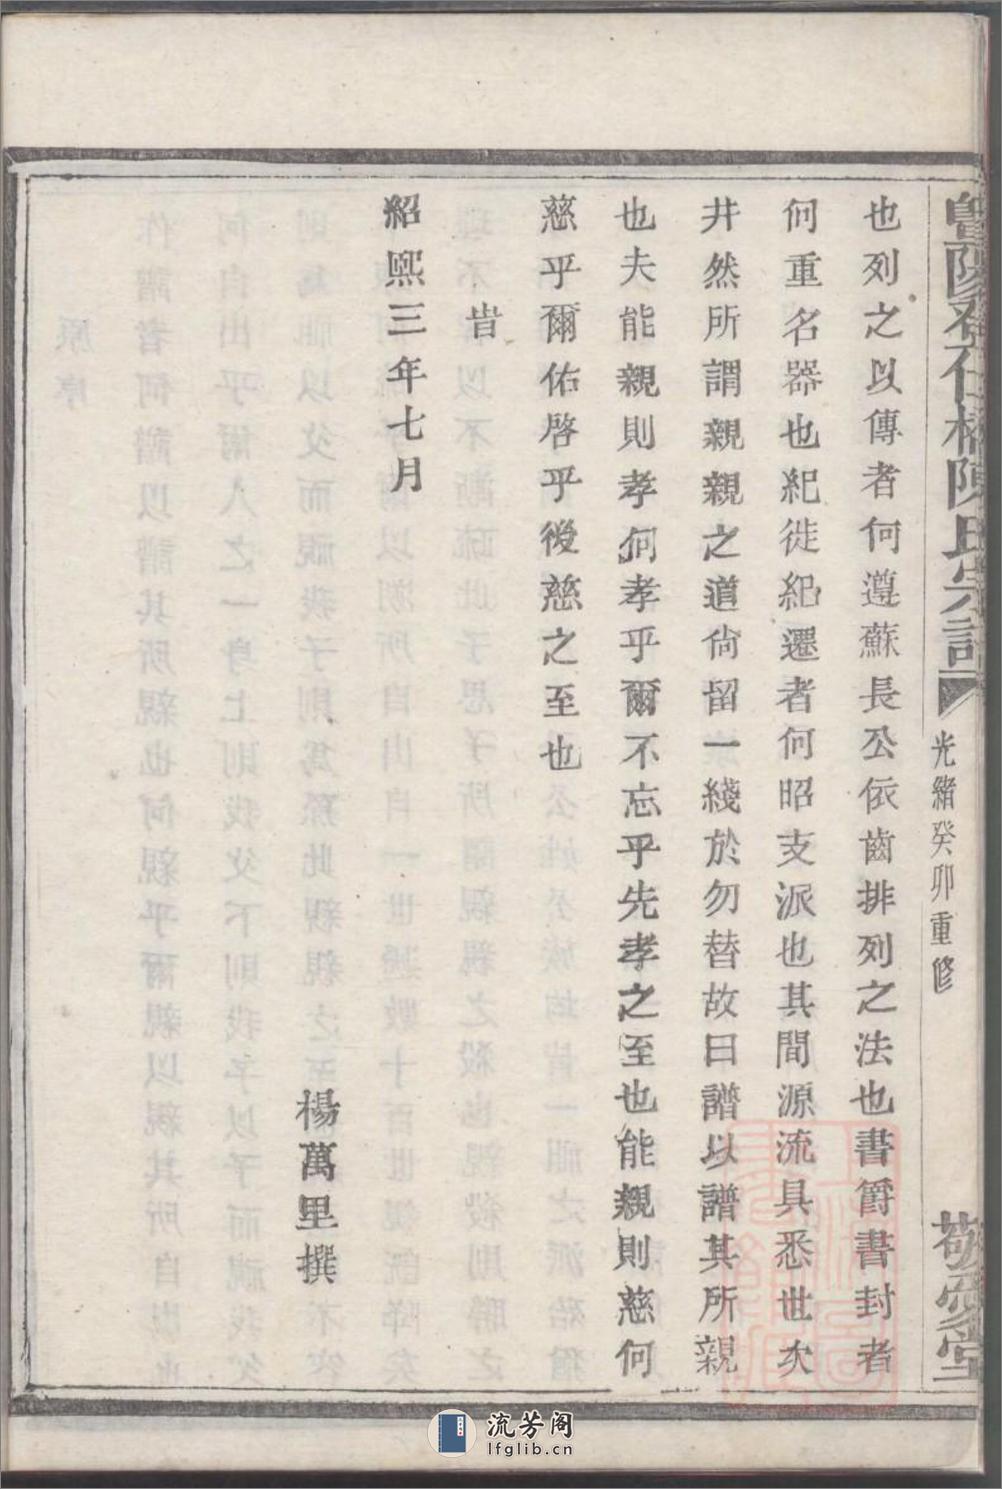 暨陽孝仁橋陳氏宗譜
光緒癸卯重修
敬愛堂
也列之以傳者何遵蘇長公依齒排列之法也書爵書封者
何重名器也紀徙紀遷者何昭支派也其間源流具悉世次
井然所謂親親之道尙留一綫於勿替故曰譜以譜其所親
也夫能親則孝何孝乎爾不忘乎先孝之至也能親則慈何
慈乎爾佑啓乎後慈之至也
旹
紹熙三年七月
楊萬里撰
流芳阁
lfglib.cn